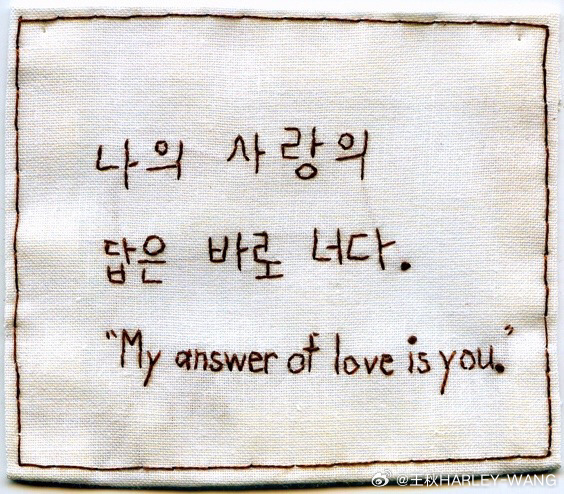 나의 사랑의
답은 바로 너다.
"My answer of love is you."
@王秋HARLEY-WANG